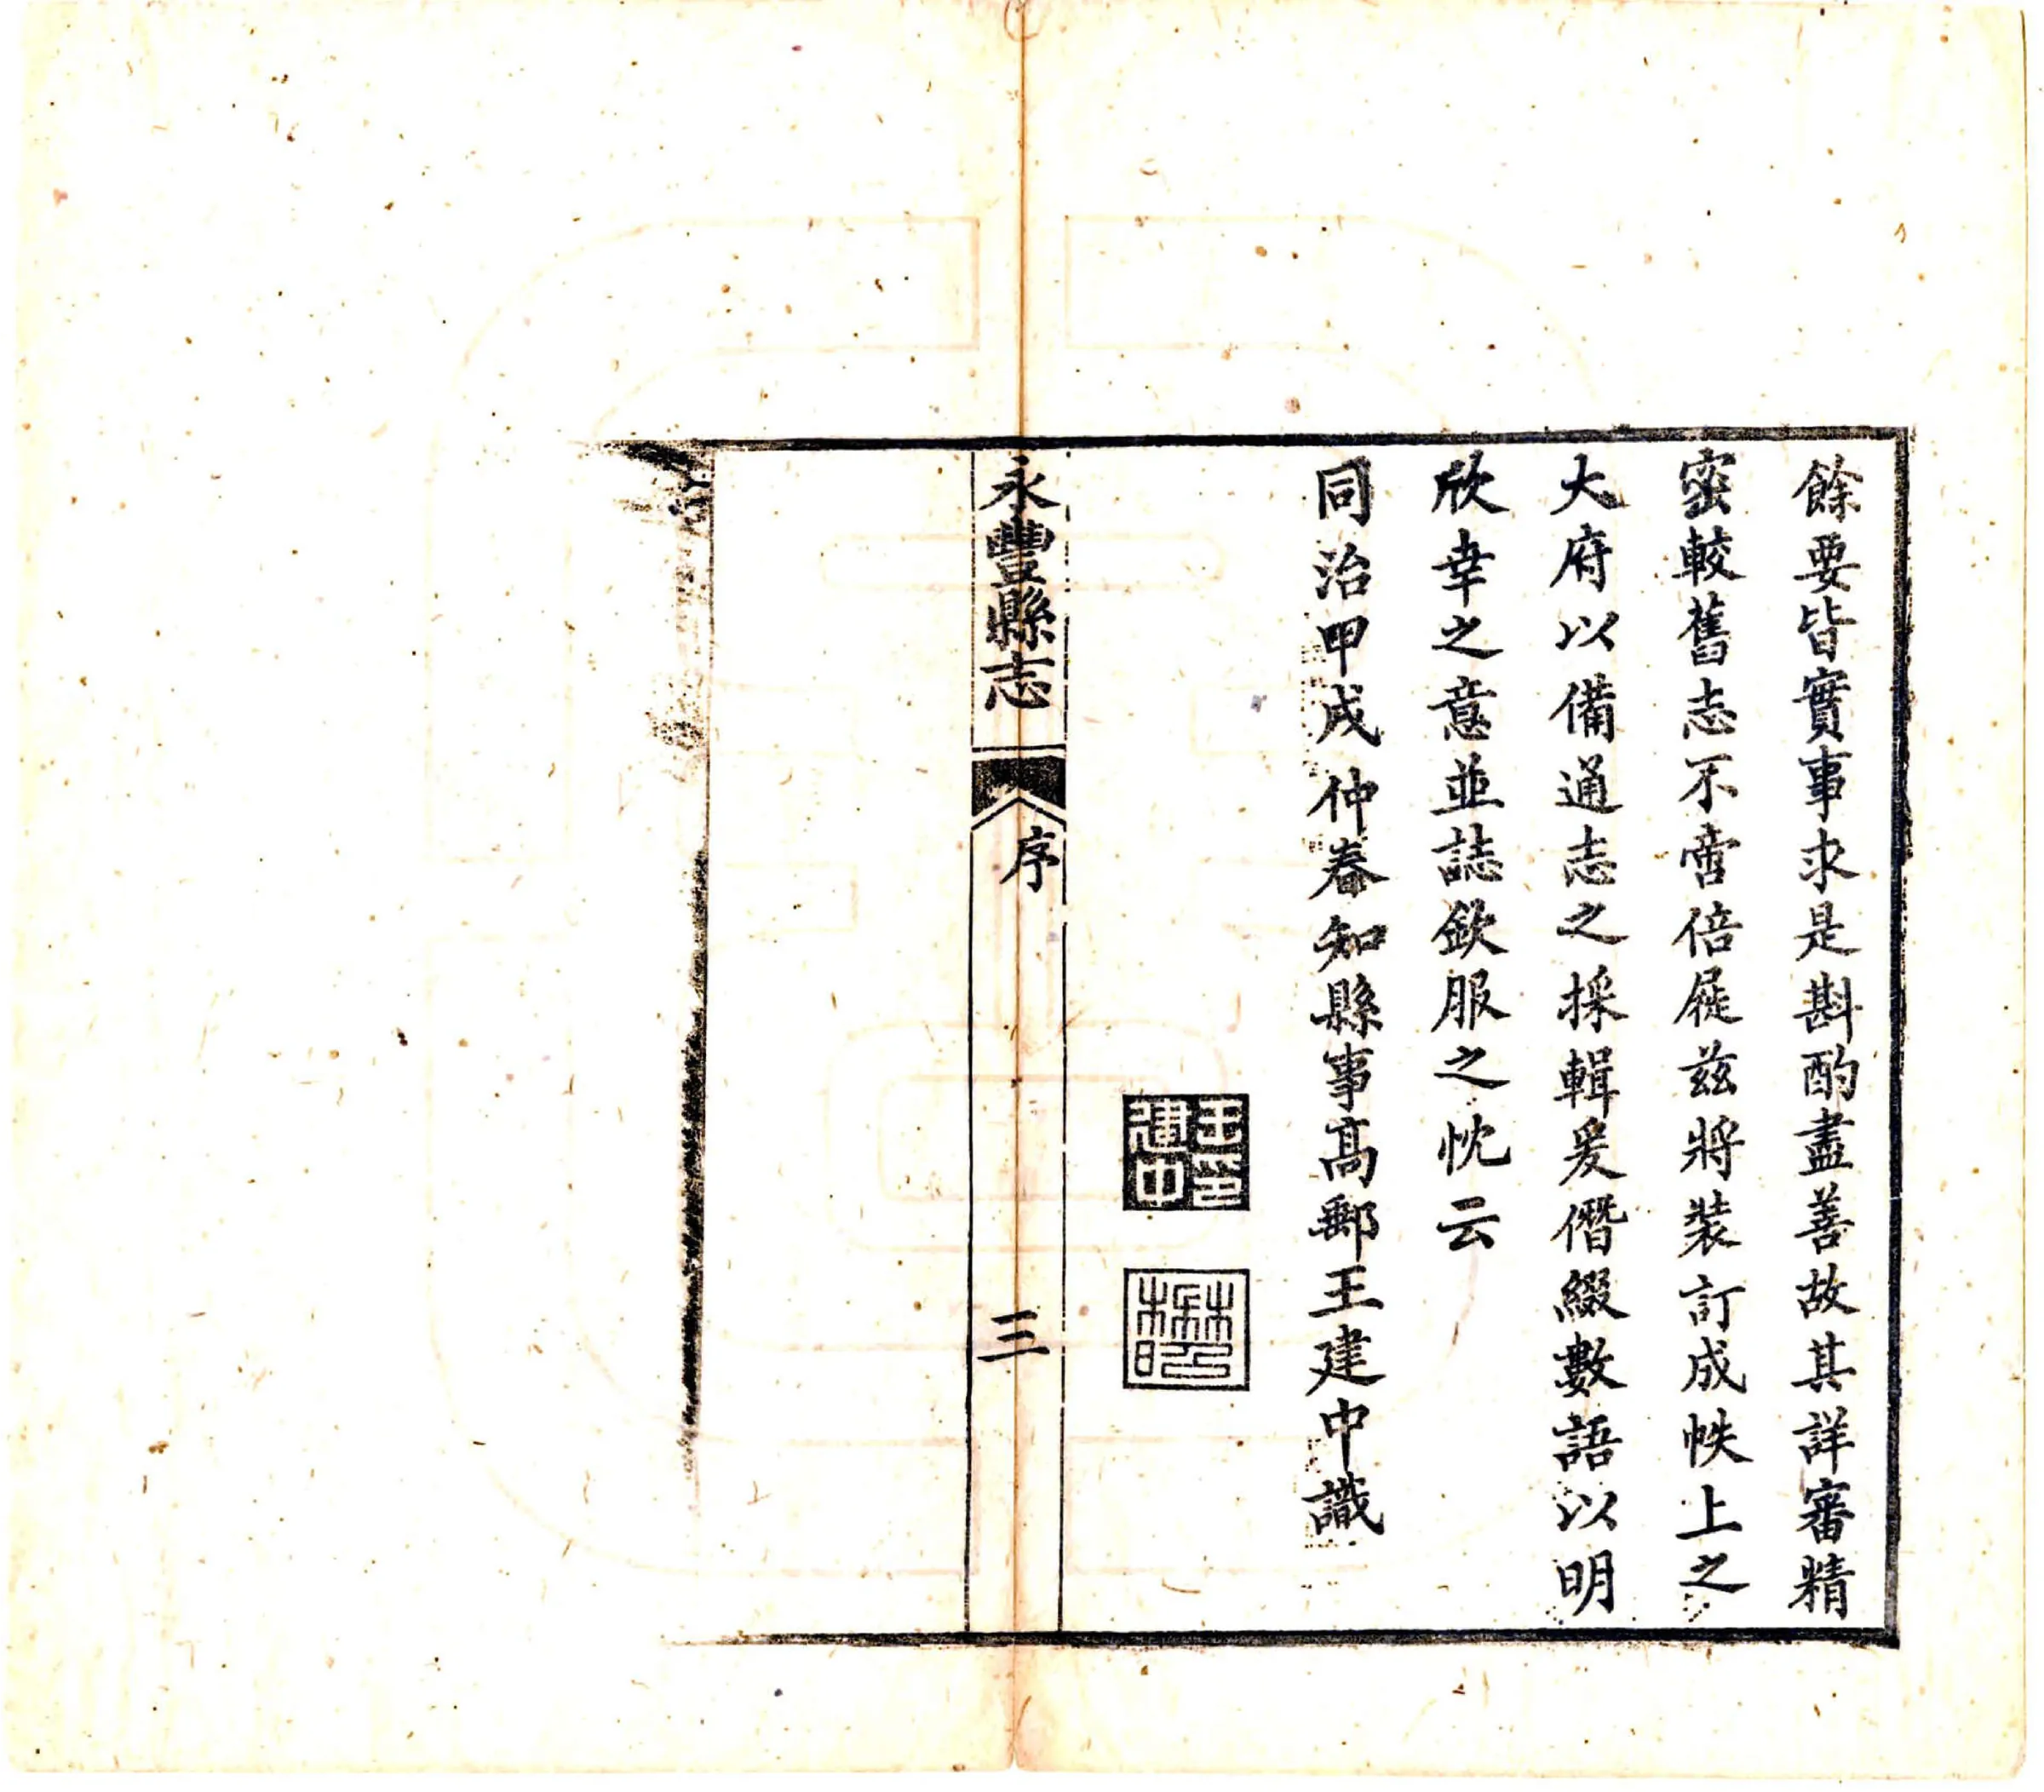 餘要皆實事求是斟酌盡善故其詳審精
密較舊志不啻倍屣茲將裝訂成帙上之
大府以備通志之採輯爰僭綴數語以明
欣幸之意並誌欽服之忱云
同治甲戌仲春知縣事高郵王建中識
王印建中
永豐縣志
序
三